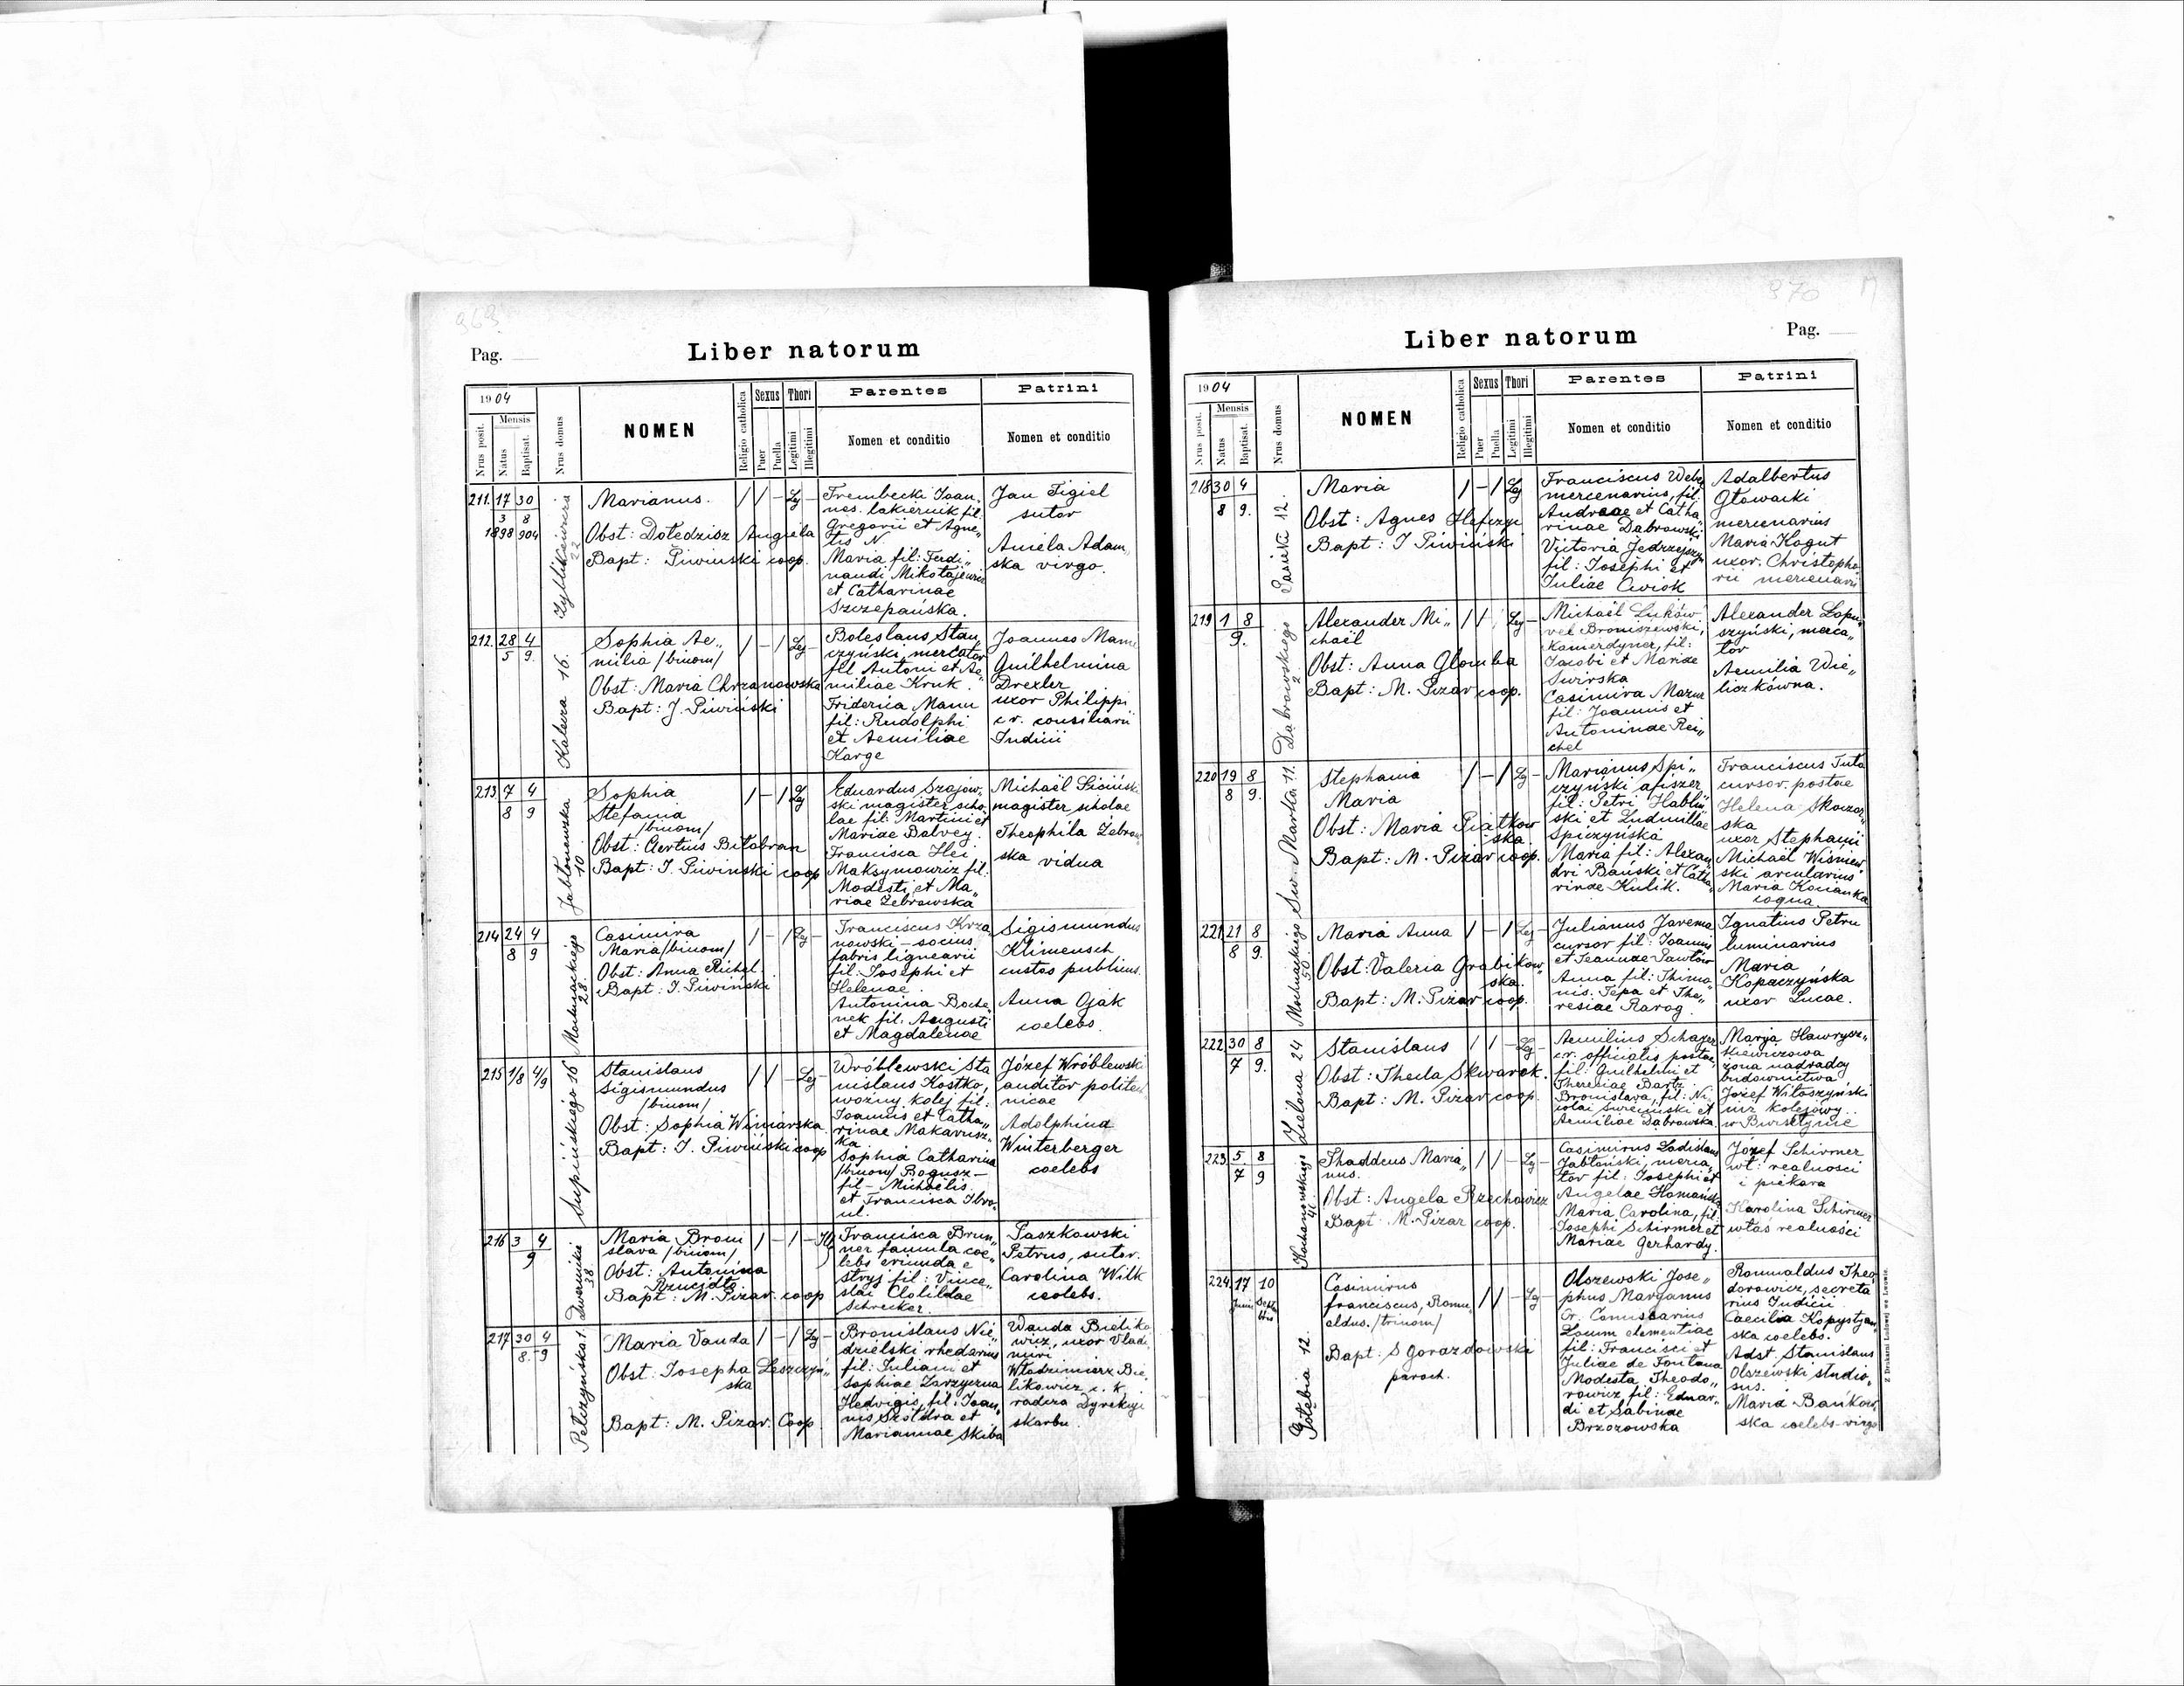 963
Pag.
Liber natorum
1904
Nrus posit.
Mensis
Natus
Baptisat.
Nrus domus
NOMEN
Religio catholica
Sexus
Puer
Puella
Thori
Legitimi
Illegitimi
Parentes
Nomen et conditio
Patrini
Nomen et conditio
211. 17 30
3 8
1898 904
Marianus.
Obst: Dołędzisz Angiela
Bapt: Piwiński coop.
/ / - Leg -
Trembecki Joan„
nes. lakiernik fil:
Gregorii et Agne„
tis N.
Maria fil: Ferdi„
nandi Mikołajewicz
et Catharinae
Szczepańska.
Jan Figiel
sutor
Aniela Adam„
ska virgo.
212. 28 4
5 9.
Kalecza 16.
Sophia Ae„
milia /binom/
Obst: Maria Chrzanowska
Bapt: J. Piwiński
/ - / Leg -
Boleslaus Stan„
czyński, mercator
fil Antoni et Ae„
miliae Kruk.
Friderica Mann
fil: Rudolphi
et Aemiliae
Karge
Joannes Mann
Guilhelmina
Drexler
uxor Philippi
c. r. consiliarii
Judicii
213 7 4
8 9
Jabłonowska
10.
Sophia
Stefania
/binom/
Obst: Bilobran
Bapt: J. Piwiński coop
/ - / Leg
Eduardus Szajow„
ski magister scho„
lae fil: Martini et
Mariae Balvey.
Francisca Hei
Maksymowicz fil.
Modesti et Ma„
riae Żebrawska
Michaël Siciński
magister scholae
Theophila Żebrow„
ska vidua
214 24 4
8 9
Mochnackiego
28.
Casimira
Maria /binom/
Obst: Anna Richel.
Bapt: J. Piwiński
/ - / Leg -
Franciscus Krza„
nowski - socius
fabris lignearii
fil: Josephi et
Helenae.
Antonina Boche„
nek fil. Augusti
et Magdalenae
Sigismundus
Klimensch
custos publicus.
Anna Ojak
coelebs.
215 1/8 4/9
Supińskiego 16
Stanislaus
Sigismundus
/binom/
Obst: Sophia Winiarska
Bapt: J. Piwiński coop
/ / - Leg -
Wróblewski Sta
nislaus Kostko,
woźny kolej fil:
Joannis et Catha„
rinae Makarusz„
ka.
Sophia Catharina
/binom/ Bogusz -
fil - Michaëlis
et Francisca
Józef Wróblewski
auditor politech
nicae
Adolphina
Winterberger
coelebs
216 3 4
9
Dwernicki
38.
Maria Broni
slava /binom/
Obst: Antonina
Bapt: M. Pizar. coop
/ - / - Ill
Francisca Brun„
ner famula coe„
lebs oriunda e
Stryj fil: Vince„
slai Clotildae
Schrecker.
Paszkowski
Petrus, sutor.
Carolina Wilk
coelebs.
217 30 4
8. 9
Pełczyńska 1.
Maria Vanda
Obst: Josepha Leszczyń„
ska
Bapt: M. Pizar. Coop.
/ - / Leg -
Bronislaus Nie„
dzielski rhedarius
fil: Juliani et
Sophiae Zarzyczna
Hedvigis, fil: Joan„
nis et
Mariannae Skiba
Wanda Bieliko
wicz, uxor Vladi
miri
Włodzimierz Bie„
likowicz c. k.
radca Dyrekcyi
skarbu
970
Liber natorum
Pag.
1904
Nrus posit.
Mensis
Natus
Baptisat.
Nrus domus
NOMEN
Religio catholica
Sexus
Puer
Puella
Thori
Legitimi
Illegitimi
Parentes
Nomen et conditio
Patrini
Nomen et conditio
218 30 4
8 9.
Pasieki 12.
Maria
Obst: Agnes
Bapt: J Piwiński
/ - / Leg
Franciscus Web
mercenarius, fil:
Andreae et Catha„
rinae Dąbrowski
Victoria Jędrzejczyn
fil: Josephi et
Juliae Cwiok
Adalbertus
Głowacki
mercenarius
Maria Kogut
uxor. Christopho„
rii mercenarii
219 1 8
9.
Dąbrowskiego
2.
Alexander Mi„
chaël
Obst: Anna Glomba
Bapt: M. Pizar coop.
/ / Leg -
Michaël Luków
vel Broniszewski,
kamerdyner, fil:
Jacobi et Mariae
Swirska
Casimira Mazur
fil: Joannis et
Antoninae Rei„
chel
Alexander Łopu„
szyński, merca„
tor
Aemilia Wie„
liczkówna.
220 19 8
8 9.
Św. Marka 11.
Stephania
Maria
Obst: Maria Piątkow
ska
Bapt: M. Pizar coop.
/ - / Leg -
Marianus Spi„
czyński afiszer
fil: Petri Habliń
ski et Ludmillae
Spiczyńska
Maria fil: Alexan„
dri Bański et Catha„
rinae Kulik.
Franciscus Tuta
cursor. postae
Helena Skoczar„
ska
uxor Stephani
Michaël Wiśniew
ski arcularius
Maria Kocianka
coqua.
221 21 8
8 9.
Mochnackiego
50.
Maria Anna
Obst: Valeria Grabikow„
ska.
Bapt: M. Pizar coop.
/ - / Leg -
Julianus Jarema
cursor fil: Joannis
et Joannae Pawłów
Anna fil: Thima„
nis. Tepa et The„
resiae Rarog.
Ignatius Petru
luminarius
Maria
Kopaczyńska
uxor Lucae.
222 30 8
7 9.
Zielona 24
Stanislaus
Obst: Thecla Skwarek.
Bapt: M. Pizar coop.
/ / - Leg -
Aemilius Schaxer
c.r. officialis postae,
fil: Guilhelmi et
Theresiae Bartz
Bronislava, fil: Ni„
colai et
Aemiliae Dąbrowska.
Marya Hawrysz„
kiewiczowa
żona nadradcy
budownictwa
Józef Witoszyński
inż kolejowy
223 5 8
7 9
Kochanowskiego
41.
Thaddeus Maria„
nus.
Obst: Angela Rzechowicz
Bapt: M. Pizar coop.
/ / - Leg -
Casimirus Ladislaus
Jabłoński, merca„
tor fil: Josephi et
Angelae Homańska
Maria Carolina, fil:
Josephi Schirmer et
Mariae Gerhardy.
Józef Schirmer
wł: realności
i piekara
Karolina Schirmer
włas realności
224 17 10
Junii Septem
bris
Gołębia 12.
Casimirus
franciscus, Romu„
aldus. /trinom/
Bapt: S Gorazdowski
paroch.
/ / - Leg -
Olszewski Jose„
phus Marganus
Cr. Comissarius
fil: Francisci et
Juliae de Fontana
Modesta Theodo„
rowicz fil: Eduar„
di et Sabinae
Brzozowska
Romualdus Theo„
dorowicz, secreta
rius Judicii
Caecilia Kopystyań„
ska coelebs.
Adst Stanislaus
Olszewski studio„
sus.
Maria Bańkow„
ska coelebs-virgo
Z Drukarni Ludowej we Lwowie.